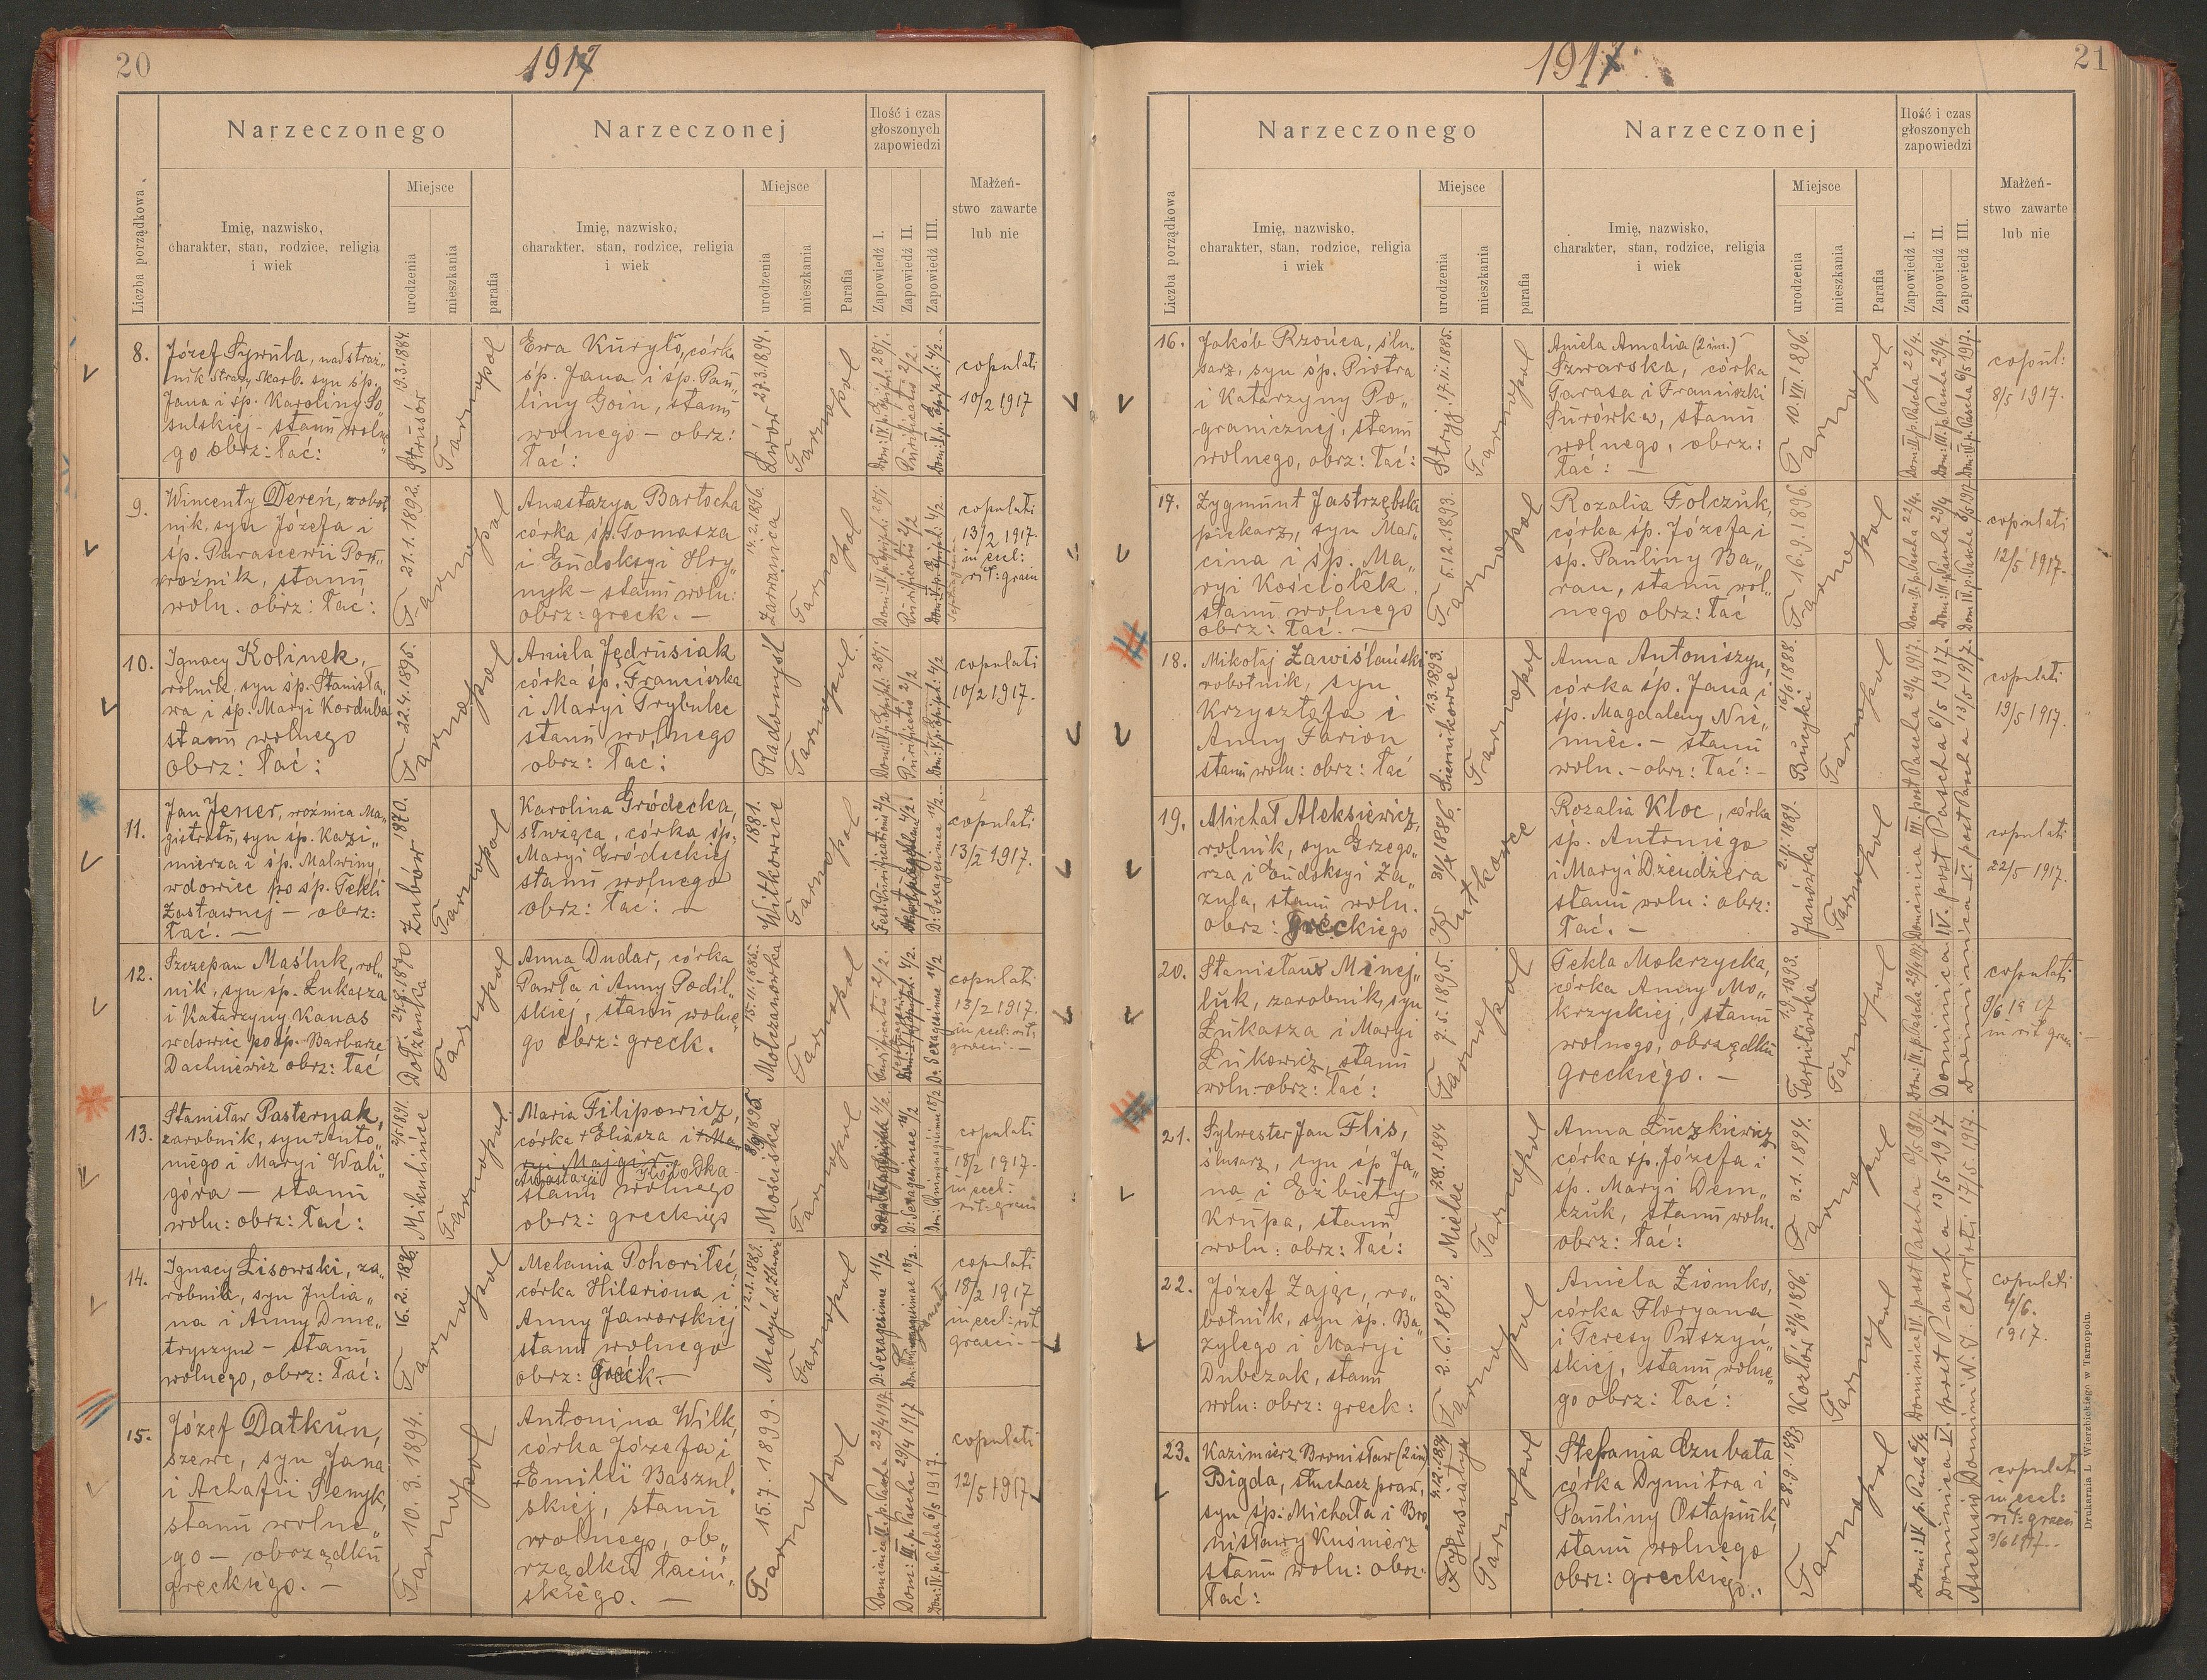 20
1917
Narzeczonego
Narzeczonej
Ilość i czas
głoszonych
zapowiedzi
Liczba porządkowa
Imię, nazwisko,
charakter, stan, rodzice, religia
i wiek
Miejsce
urodzenia
mieszkania
parafia
Imię, nazwisko,
charakter, stan, rodzice, religia
i wiek
Miejsce
urodzenia
mieszkania
Parafia
Zapowiedź I.
Zapowiedź II.
Zapowiedź III.
Małżeń-
stwo zawarte
lub nie
8.
Józef Sywula, nadstraż„
nik Straży Skarb. syn śp.
Jana i śp. Karoliny So„
sulskiej - stanu wolne„
go obrz: łać:
Strusór 19.3.1884.
Tarnopol
Ewa Kuryło, córka
śp. Jana i śp. Pau„
liny Goin, stanu
wolnego - obrz:
łać:
Lwów 27.3.1894.
Tarnopol
Dom: IV. p. Epiph: 28/1.
Purificatio 2/2.
Dom: V. p. Epiph: 4/2.
copulati
10/2 1917
9.
Wincenty Dereń, robot
nik, syn Józefa i
śp. Parascewii Pow„
roźnik, stanu
woln. obrz: łać:
T 21.1.1892.
Tarnopol
Anastazya Bartocha
córka śp. Tomasza
i Eudoksyi Hry„
nyk - stanu woln:
obrz: greck. -
Zarwanica 14.2.1896.
Tarnopol
Dom: IV. p. Epiph: 28/1
Purificatio 2/2
Dom: V. p. Epiph: 4/2.
copulati
13/2 1917.
in eccl:
rit: graeci
10.
Ignacy Kolinek,
rolnik, syn śp. Stanisła„
wa i śp. Maryi Korduba
stanu wolnego
obrz: łać:
T 22.4.1895.
Tarnopol
Aniela Jędrusiak
córka śp. Franciszka
i Maryi Trybulec
stanu wolnego
obrz: łać:
Radomyśl
Tarnopol.
Dom: IV. p. Epiph: 28/1
Purificatio 2/2
Dom: V. p. Epiph: 4/2
copulati
10/2 1917.
11.
Jan Jener, woźnica Ma„
gistratu, syn śp. Kazi„
mierza i śp. Malwiny,
wdowiec po śp. Tekli
Zastawnej - obrz:
łać. -
Zubów 1870.
Tarnopol
Karolina Gródecka,
służąca, córka śp.
Maryi Gródeckiej
stanu wolnego
obrz: łać:
Witkowice 1881.
Tarnopol
Fest. Purificationis 2/2
D: Sexagesimae 11/2.
copulati
13/2 1917.
12.
Szczepan Maśluk, rol„
nik, syn śp. Łukasza
i Katarzyny Kanas
wdowiec po śp. Barbarze
Dachniewicz obrz: łać
Dołżanka 24.8.1870
Tarnopol
Anna Dudar, córka
Pawła i Anny Podil„
skiej, stanu wolne„
go obrz: greck.
Mołczanówka 15.11.1885.
Tarnopol
Purificatio 2/2.
D: Sexagesimae 11/2
copulati
13/2 1917.
in eccl: rit:
graeci. -
13.
Stanisław Pasternak,
zarobnik, syn + Anto„
niego i Maryi Wali„
góra - stanu
woln: obrz: łać:
Mikulińce 2/5 1891.
Tarnopol.
Maria Filipowicz,
córka + Eliasza i + Ma„
ryi Majgier
Anastazii Kołodka
stanu wolnego
obrz: greckiego
Mościska
Tarnopol
D: Sexagesimae 11/2
Dom: Quinquagesima 18/2
copulati
18/2 1917.
in eccl:
rit: graeci
14.
Ignacy Lisowski, za„
robnik, syn Julia„
na i Anny Dme„
tryszyn - stanu
wolnego, obrz: łać:
T 16.2.1896.
Tarnopol
Melania Pohoriłeć
córka Hilariona i
Anny Jaworskiej
stanu wolnego
obrz: Greck. -
Tarnopol
D: Sexagesimae 11/2
Dom: Quinquagesimae 18/2.
copulati
18/2 1917
in eccl: rit:
graeci. -
15.
Józef Datkun,
szewc, syn Jana
i Achafii Senyk,
stanu wolne„
go - obrządku
greckiego. -
10.3.1894.
Tarnopol
Antonina Wilk,
córka Józefa i
+ Emilii Baszul„
skiej, stanu
wolnego, ob„
rządku łaciń„
skiego. -
15.7.1899.
Tarnopol
Dominica II. p. Pascha 22/4 1917.
Dom: III. p. Pascha 29/4 1917
Dom: IV. p. Pascha 6/5 1917.
copulati
12/5 1917
21
1917
Narzeczonego
Narzeczonej
Ilość i czas
głoszonych
zapowiedzi
Liczba porządkowa
Imię, nazwisko,
charakter, stan, rodzice, religia
i wiek
Miejsce
urodzenia
mieszkania
parafia
Imię, nazwisko,
charakter, stan, rodzice, religia
i wiek
Miejsce
urodzenia
mieszkania
Parafia
Zapowiedź I.
Zapowiedź II.
Zapowiedź III.
Małżeń-
stwo zawarte
lub nie
16.
Jakób Rzońca, ślu„
sarz, syn śp. Piotra
i Katarzyny Po„
granicznej, stanu
wolnego, obrz: łać:
Stryj 17.11.1885.
Tarnopol
Aniela Amalia (2 im.)
Szwarska, córka
Tarasa i Franciszki
Surówka, stanu
wolnego, obrz:
łać: -
T 10.VII.1896.
Tarnopol
Dom: II. p. Pascha 22/4.
Dom: III. p. Pascha 29/4.
Dom: IV. p. Pascha 6/5 1917.
copul:
8/5 1917.
17.
Zygmunt Jastrzębski
piekarz, syn Mar„
cina i śp. Ma„
ryi Kościółek.
stanu wolnego
obrz: łać. -
T 5.12.1893.
Tarnopol
Rozalia Folczuk,
córka śp. Józefa i
śp. Pauliny Ba„
ran, stanu wol„
nego obrz: łać
T 16.9.1896.
Tarnopol
Dom: II. p. Pascha 22/4.
Dom: III. p. Pascha 29/4
Dom: IV. p. Pascha 6/5 1917.
copulati
12/5 1917.
18.
Mikołaj Zawiślański
robotnik, syn
Krzysztofa i
Anny Farion
stanu woln: obrz: łać
Siemikowce 1.3.1893.
Tarnopol
Anna Antoniszyn,
córka śp. Jana i
śp. Magdaleny Nie„
miec. - stanu
woln. - obrz: łać: -
Bucyki 16/6 1888.
Tarnopol
Dominica III. post Pascha 29/4 1917.
Dominica IV. post Pascha 6/5 1917.
Dominica V. post Pascha 13/5 1917.
copulati
19/5 1917.
19.
Michał Aleksiewicz,
rolnik, syn Grzego„
rza i Eudoksyi Za„
zula, stanu woln.
obrz: Greckiego
Kutkowce
Rozalia Kloc, córka
śp. Antoniego
i Maryi Dziendziera
stanu woln: obrz:
łać. -
Janówka 2.4.1889.
Tarnopol
copulati
22/5 1917.
20.
Stanisław Minej„
luk, zarobnik, syn
Łukasza i Maryi
Łukowicz, stanu
woln - obrz: łać:
T 7.5.1895.
Tarnopol
Tekla Mokrzycka,
córka Anny Mo„
krzyckiej, stanu
wolnego, obrządku
Greckiego. -
Terpiłówka 1.9.1893.
Tarnopol
Dom: III. p. Pascha 29/4 1917
copulati
9/6 1917
in rit. graeci
21.
Sylwester Jan Flis,
ślusarz, syn śp Ja„
na i Elżbiety
Krupa, stanu
woln: obrz: łać:
Mielec 7.8.1894
Tarnopol
Anna Łuczkiewicz
córka śp. Józefa i
śp. Maryi Dem„
czuk, stanu woln.
obrz: łać:
T 3.1.1894.
Tarnopol
Dominica IV. post Pascha 6/5 1917.
Dominica V. post Pascha 13/5 1917
Ascensio Domini N. J. Christi 17/5 1917.
22.
Józef Zając, ro„
botnik, syn śp. Ba„
zylego i Maryi
Dubczak, stanu
woln: obrz: greck:
T 2.6.1893.
Tarnopol
Aniela Ziomko,
córka Floryana
i Teresy Puszyń„
skiej, stanu wolne„
go obrz: łać:
Kozłów 21/6 1896.
Tarnopol
copulati
4/6.
1917.
23.
Kazimierz Bronisław (2 im)
Bigda, słuchacz praw,
syn śp. Michała i Bro„
nisławy Kuśnierz
stanu woln: obrz:
łać:
Husiatyn
Tarnopol
Stefania Czubata
córka Dymitra i
Pauliny Ostapiuk,
stanu wolnego
obrz: greckiego.:
T 28.9.1893
Tarnopol
Dom: IV. p. Pascha 6/5
copulati
in eccl:
rit: graeci
3/6 1917.
Drukarnia L. Wierzbickiego w Tarnopolu.